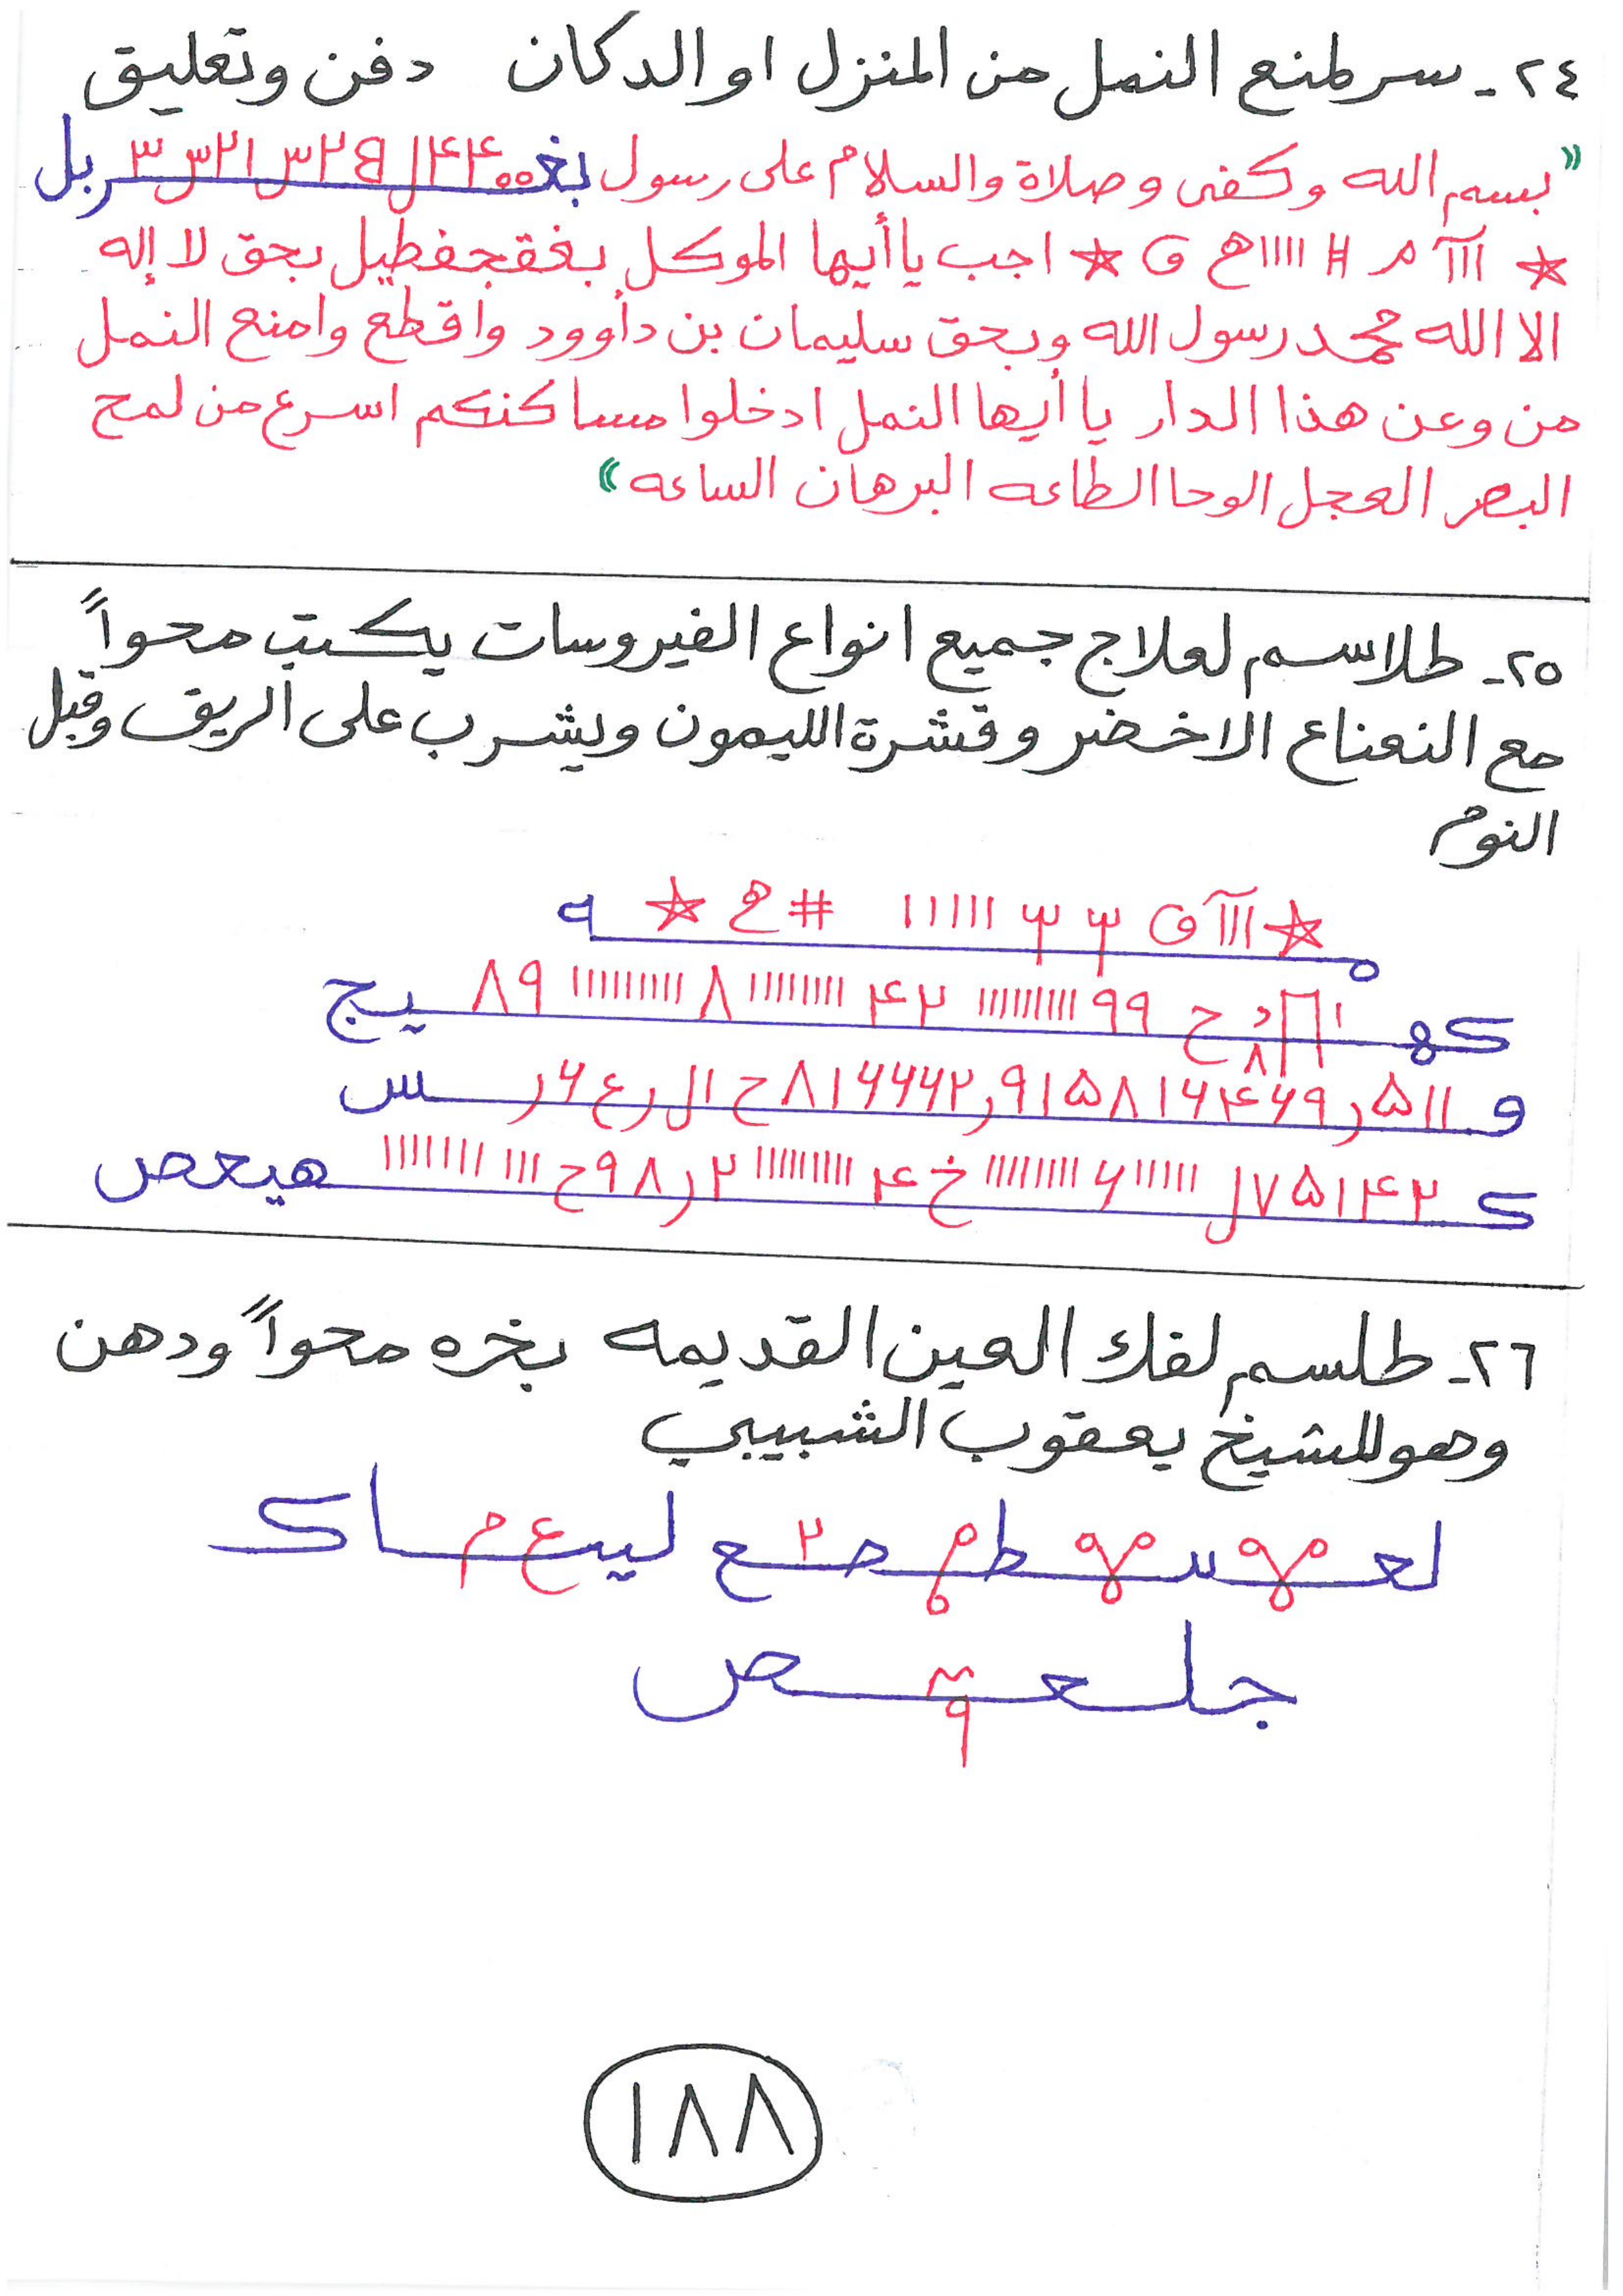 ٢٤- سر لمنع النمل من المنزل او الدكان دفن وتعليق
«بسم الله وكفى وصلاة والسلام على رسول بغ
★ ااا م # ااااا ح ★ اجب يا أيها الموكل بغقجفطيل بحق لا إله
الا الله محمد رسول الله وبحق سليمان بن دأوود واقطع وامنع النمل
من وعن هذا الدار يا أيها النمل ادخلوا مساكنكم اسرع من لمح
البصر العجل الوحا الطاعه البرهان الساعه»
٢٥- طلاسم لعلاج جميع انواع الفيروسات يكتب محواً
مع النعناع الاخضر وقشرة الليمون ويشرب على الريق وقبل
النوم
كهـ ح ٩٩ ااااااااا ٢۴ ااااااااا ٨ اااااااااا ٨٩ يج
و اا ۵ ر ٩۶۴۶ا٨۵ا٩ر٢۶۶۶ا٨ ح ال ر ع ۶ ر س
ك ٢۴ا۵٧ل اااااا ۶ ااااااااا خ ۴ ااااااااا ٢ر٨٩ح ااا ااااااا هيعص
٢٦- طلسم لفك العين القديمه بخره محواً ودهن
وهو للشيخ يعقوب الشبيبي
جلعـص
١٨٨